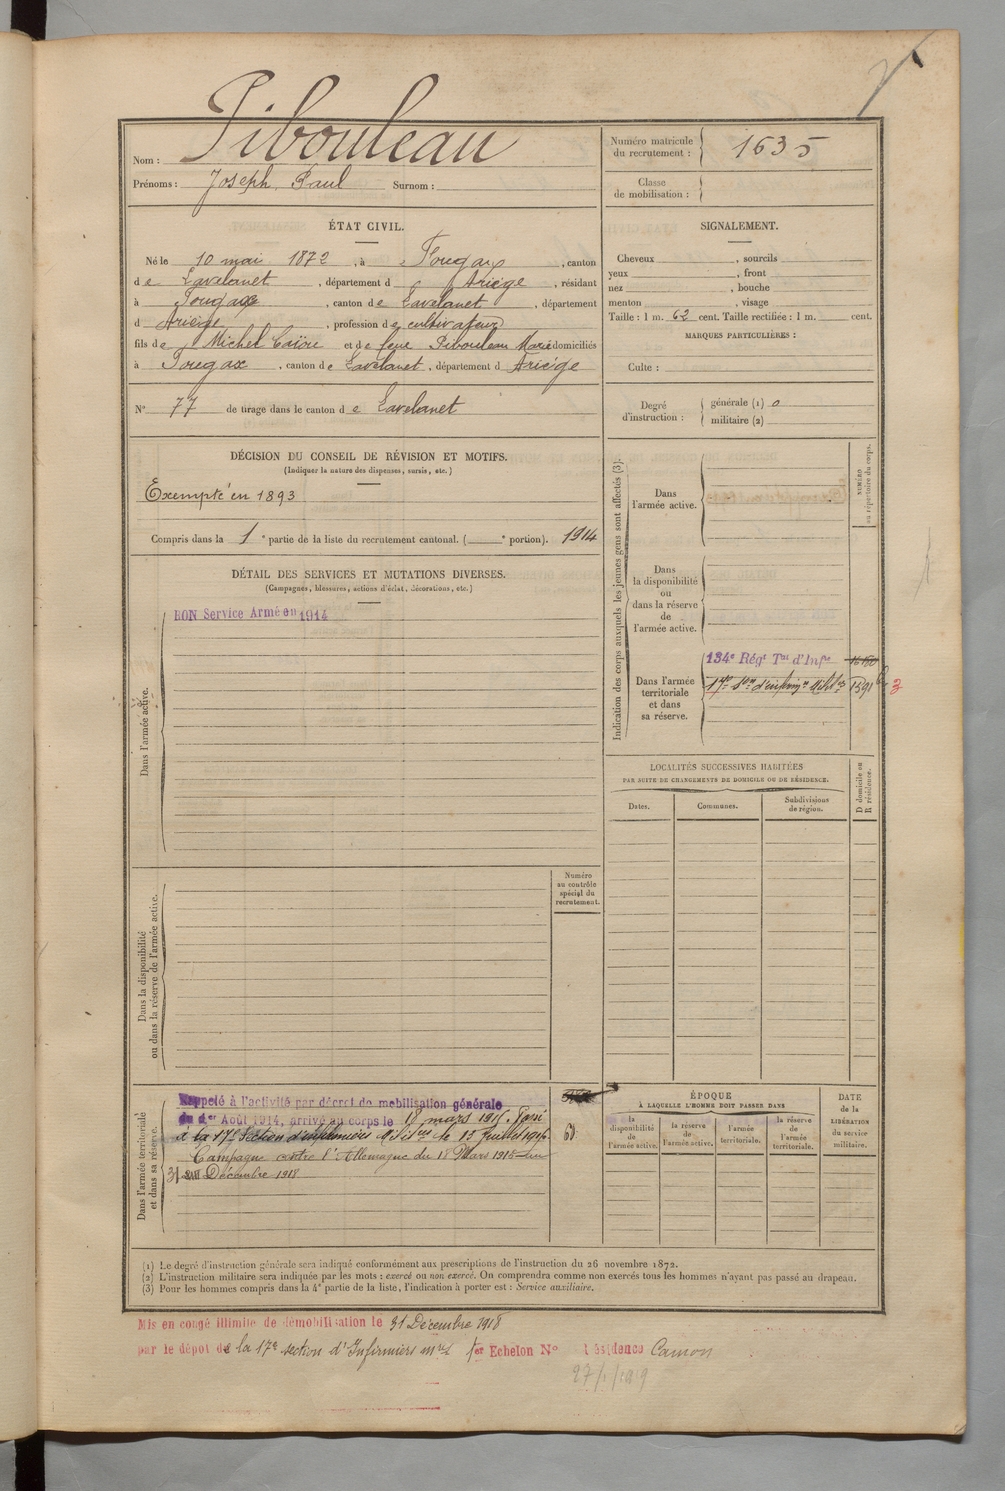 Nom : Pibouleau
Prénoms : Joseph Paul Surnom :
Numéro matricule du recrutement : 1635
Classe de mobilisation :
ÉTAT CIVIL.
Né le 10 mai 1872, à Fougax, canton
de Lavelanet, département d Ariège, résidant
à Fougax, canton de Lavelanet, département
d Ariège, profession de cultivateur
fils de Michel Caïre et de feue Pibouleau Marie domiciliés
à Fougax, canton de Lavelanet, département d Ariège
N° 77 de tirage dans le canton de Lavelanet
SIGNALEMENT.
Cheveux , sourcils
yeux , front
nez , bouche
menton , visage
Taille : 1 m. 62 cent. Taille rectifiée : 1 m. cent.
MARQUES PARTICULIÈRES :
Culte :
Degré d'instruction : générale (1) 0
militaire (2)
DÉCISION DU CONSEIL DE RÉVISION ET MOTIFS.
(Indiquer la nature des dispenses, sursis, etc.)
Exempté en 1893
Compris dans la 1e partie de la liste du recrutement cantonal. ( e portion). 1914
DÉTAIL DES SERVICES ET MUTATIONS DIVERSES.
(Campagnes, blessures, actions d'éclat, décorations, etc.)
Dans l'armée active.
BON Service Armé en 1914
Indication des corps auxquels les jeunes gens sont affectés (3).
NUMÉRO au répertoire du corps.
Dans l'armée active.
Dans la disponibilité ou dans la réserve de l'armée active.
Dans l'armée territoriale et dans sa réserve.
134e Régt Tal d'Infie
17e Son d'infirmrs Milit 1591
3
LOCALITÉS SUCCESSIVES HABITÉES
PAR SUITE DE CHANGEMENTS DE DOMICILE OU DE RÉSIDENCE.
Dates. Communes. Subdivisions de région. D domicile ou R résidence.
Dans la disponibilité ou dans la réserve de l'armée active.
Numéro au contrôle spécial du recrutement.
Dans l'armée territoriale et dans sa réserve.
Rappelé à l'activité par décret de mobilisation générale
du 1er Août 1914, arrivé au corps le 18 mars 1915. Passé
à la 17e Section d'infirmiers le 15 Juillet 1916
Campagne contre l'Allemagne du 18 Mars 1915 au
31 Décembre 1918
ÉPOQUE
À LAQUELLE L'HOMME DOIT PASSER DANS
la disponibilité de l'armée active. la réserve de l'armée active. l'armée territoriale. la réserve de l'armée territoriale.
DATE de la LIBÉRATION du service militaire.
(1) Le degré d'instruction générale sera indiqué conformément aux prescriptions de l'instruction du 26 novembre 1872.
(2) L'instruction militaire sera indiquée par les mots : exercé ou non exercé. On comprendra comme non exercés tous les hommes n'ayant pas passé au drapeau.
(3) Pour les hommes compris dans la 4e partie de la liste, l'indication à porter est : Service auxiliaire.
Mis en congé illimité de démobilisation le 31 Décembre 1918
par le dépôt de la 17e section d'Infirmiers 1er Echelon N° Résidence Camon
27/1/1919